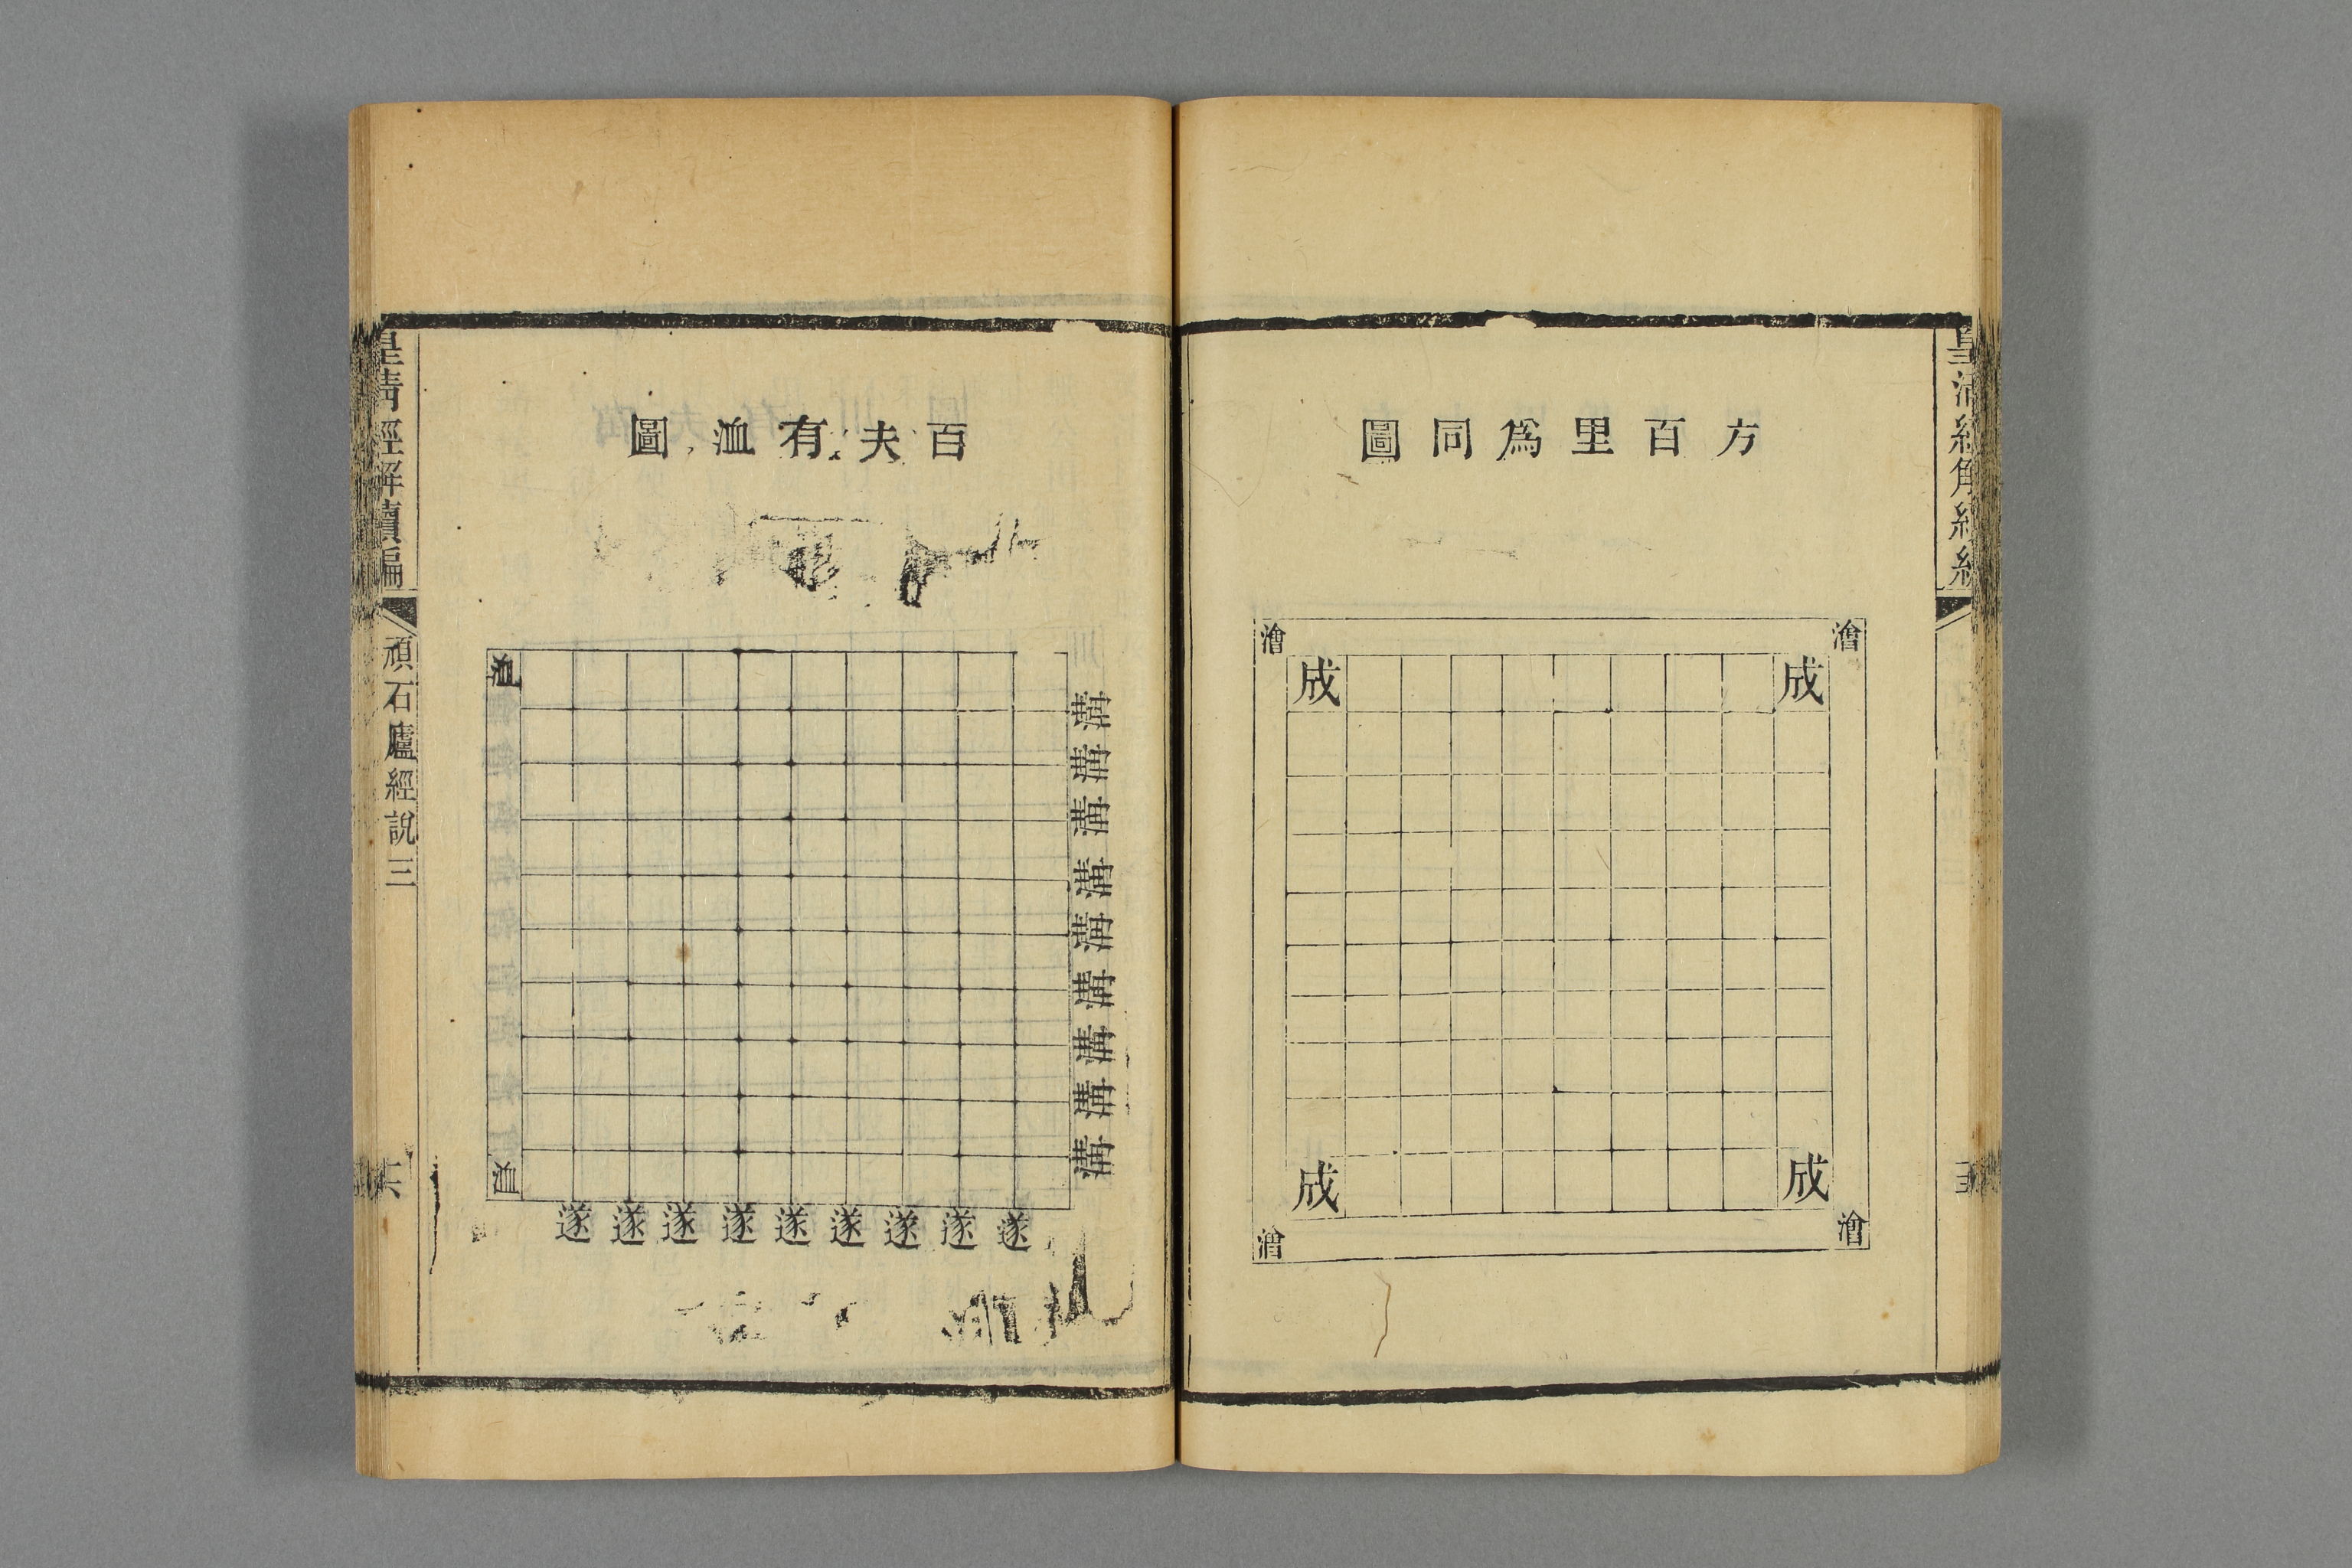 方百里爲同圖
澮
澮
成
成
成
成
澮
澮
百夫有洫圖
溝
溝
溝
溝
溝
溝
溝
溝
溝
遂
遂
遂
遂
遂
遂
遂
遂
遂
皇清經解續編
頑石廬經說三
六